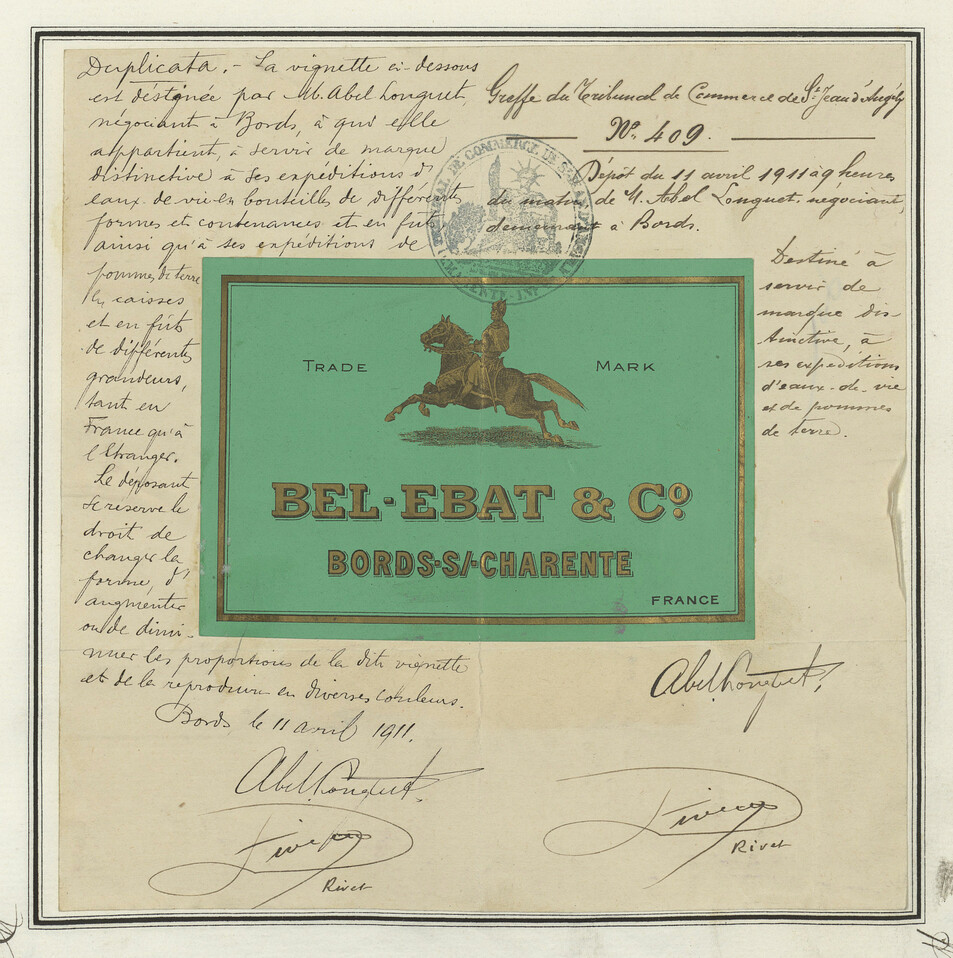 Duplicata. - La vignette ci-dessous
est désignée par M. Abel Longuet,
négociant à Bords, à qui elle
appartient, à servir de marque
distinctive à ses expéditions d'
eaux-de-vie en bouteilles de différentes
formes et contenances et en fûts
ainsi qu'à ses expéditions de
pommes de terre
en caisses
et en fûts
de différentes
grandeurs,
tant en
France qu'à
l'Etranger.
Le déposant
se réserve le
droit de
changer la
forme, d'
augmenter
ou de dimi-
nuer les proportions de la dite vignette
et de la reproduire en diverses couleurs.
Bords, le 11 avril 1911.
Abel Longuet
Rivet
Greffe du Tribunal de Commerce de St Jean d'Angély
No. 409.
Dépôt du 11 avril 1911 à 9 heures
du matin, de M. Abel Longuet, négociant,
demeurant à Bords.
Destiné à
servir de
marque dis-
tinctive, à
ses expéditions
d'eaux-de-vie
et de pommes
de terre.
TRADE MARK
BEL-EBAT & Co
BORDS-S/-CHARENTE
FRANCE
Abel Longuet
Rivet